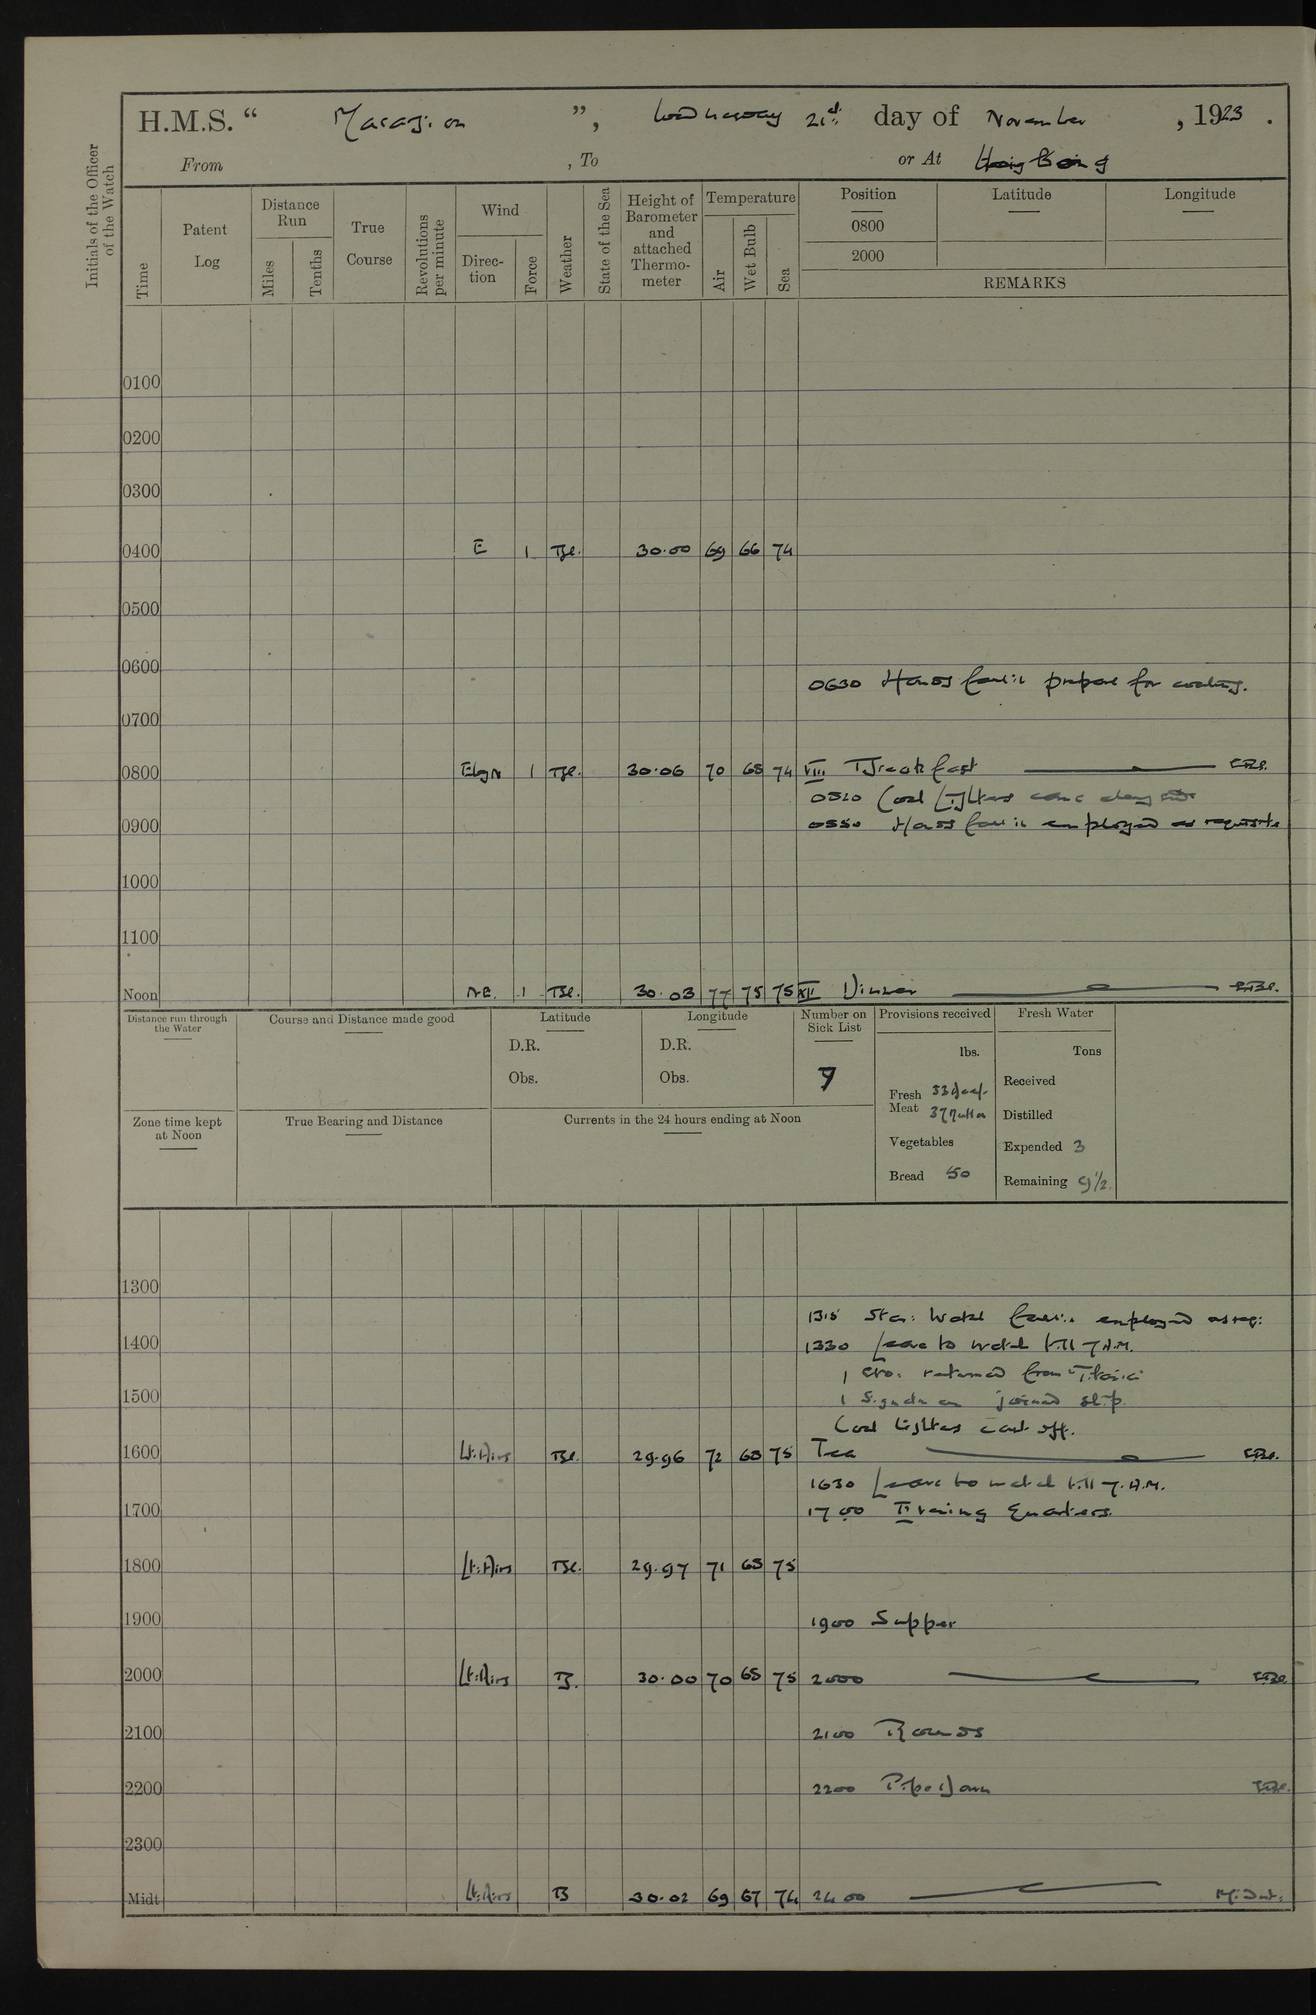 H.M.S. “ Marazion ”, Wednesday 21st day of November, 1923.
From , To or At Hong Kong
Initials of the Officer of the Watch
Time
Patent Log
Distance Run
Miles
Tenths
True Course
Revolutions per minute
Wind
Direc-tion
Force
Weather
State of the Sea
Height of Barometer and attached Thermo-meter
Temperature
Air
Wet Bulb
Sea
Position Latitude Longitude
0800
2000
REMARKS
0100
0200
0300
0400 E 1 Bc. 30.00 69 66 74
0500
0600
0630 Hands fall in prepare for coaling.
0700
0800 E by N 1 Bc. 30.06 70 68 74 VIII Breakfast
0820 Coal Lighters came alongside
0850 Hands fall in employed as requisite
0900
1000
1100
Noon NE. 1 Bc. 30.03 77 75 75 XII Dinner
Distance run through the Water
Course and Distance made good
Latitude
D.R.
Obs.
Longitude
D.R.
Obs.
Number on Sick List
7
Provisions received
lbs.
Fresh Meat 53 Beef
37 Mutton
Vegetables
Bread 50
Fresh Water
Tons
Received
Distilled
Expended 3
Remaining 9 1/2
Zone time kept at Noon
True Bearing and Distance
Currents in the 24 hours ending at Noon
1300
1315 Star: Watch fall in employed as req:
1330 Leave to watch till 7 A.M.
1400
1 Sto. returned from
1 Signalman joined ship
1500
Coal lighters cast off.
1600 Lt: Airs Bc. 29.96 72 68 75 Tea
1630 Leave to watch till 7. A.M.
1700 1700 Evening Quarters.
1800 Lt: Airs Bc. 29.97 71 68 75
1900 1900 Supper
2000 Lt: Airs B. 30.00 70 68 75 2000
2100 2100 Rounds
2200 2200 Pipe Down
2300
Midt Lt: Airs B 30.02 69 67 74 2400